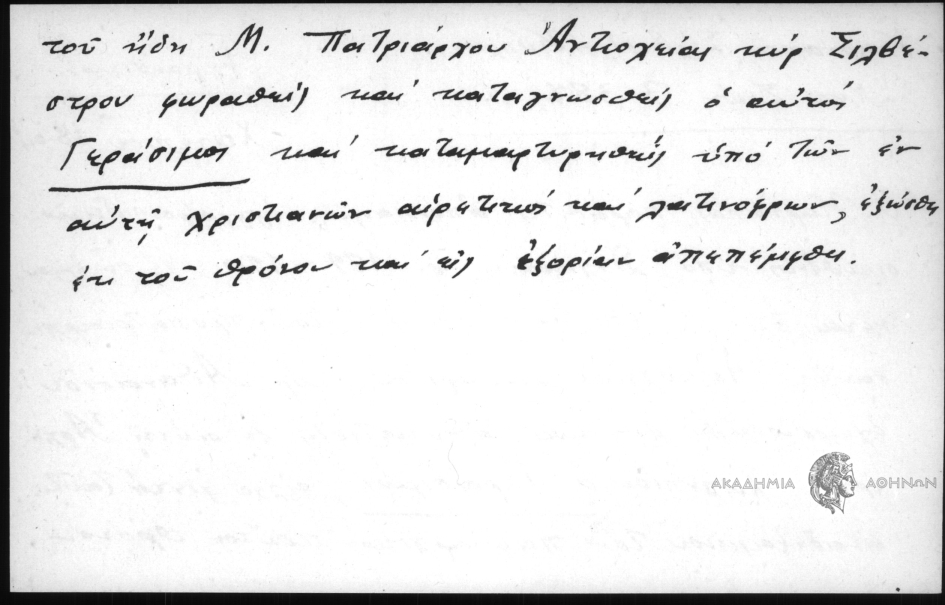 τοῦ ἤδη Μ. Πατριάρχου Ἀντιοχείας κύρ Σιλβέ-
στρου φωραθείς καί καταγνωσθείς ὁ αὐτός
Γεράσιμος καί καταμαρτυρηθείς ὑπό τῶν ἐν
αὐτῇ χριστιανῶν αἱρετικός καί λατινόφρων, ἐξώσθη
ἐκ τοῦ θρόνου καί εἰς ἐξορίαν ἀπεπέμφθη.
ΑΚΑΔΗΜΙΑ ΑΘΗΝΩΝ